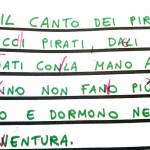 IL CANTO DEI PIR
CCI PIRATI, DAL
ATI CON LA MANO A
NNO NON FANO PIÙ
O E DORMONO NE
VENTURA.